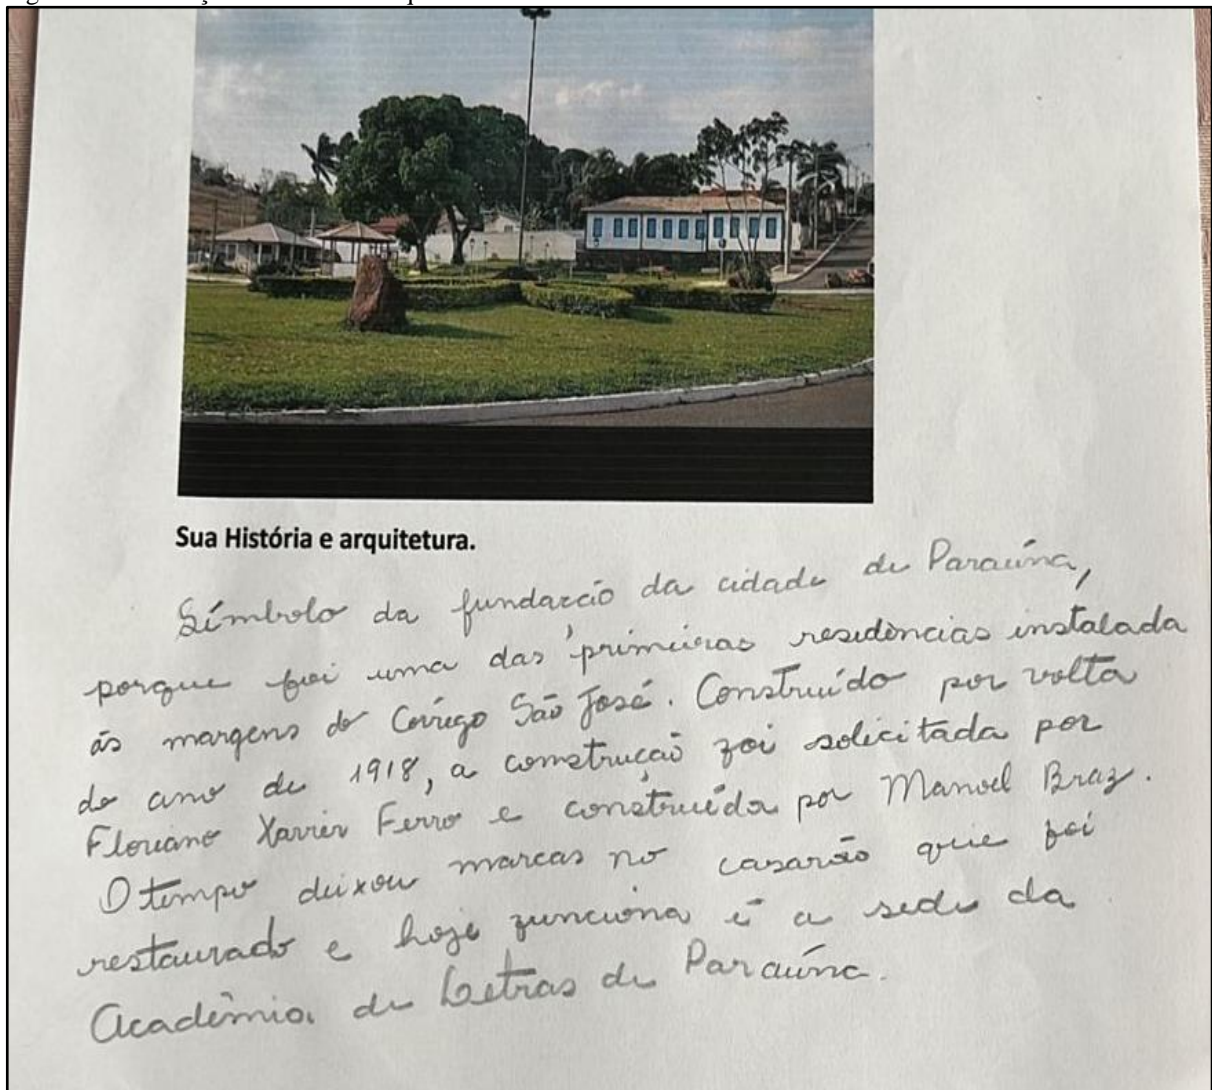 Sua História e arquitetura.
Símbolo da fundação da cidade de Paraúna,
porque foi uma das primeiras residências instalada
ás margens do Corrego São José. Construído por volta
do ano de 1918, a construção foi solicitada por
Floriano Xavier Ferro e construída por Manoel Braz.
O tempo deixou marcas no casarão que foi
restaurado e hoje funciona é a sede da
Acadêmia de Letras de Paraúna.